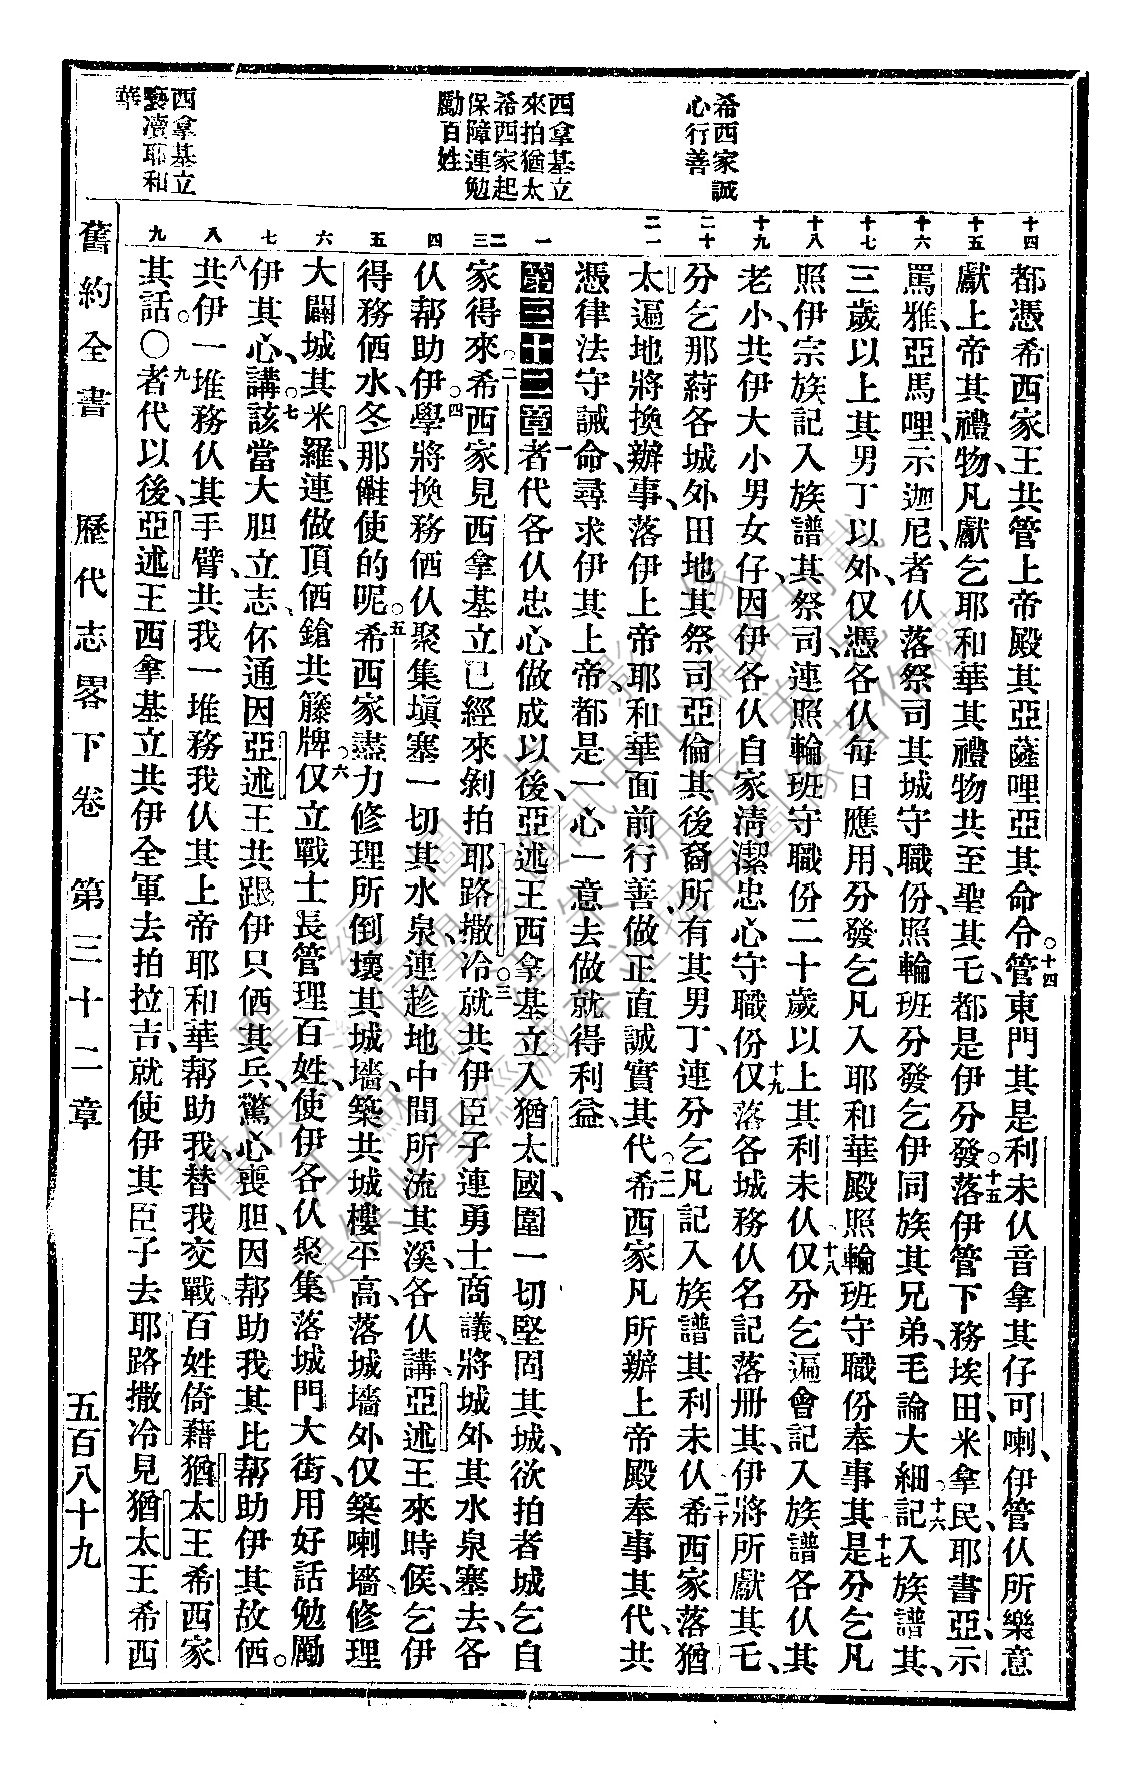 希西家誠
心行善
西拿基立
來拍猶太
希西家起
保障連勉
勵百姓
西拿基立
褻瀆耶和
華
十四
十五
十六
十七
十八
十九
二十
二一
一
二
三
四
五
六
七
八
九
都憑希西家王共管上帝殿其亞薩哩亞其命令。十四管東門其是利未仈音拿其仔可喇、伊管仈所樂意
獻上帝其禮物、凡獻乞耶和華其禮物共至聖其乇、都是伊分發。十五落伊管下務埃田、米拿民、耶書亞、示
罵雅、亞馬哩、示迦尼、者仈落祭司其城守職份、照輪班分發乞伊同族其兄弟、毛論大細。十六記入族譜其、
三歲以上其男丁以外、仅憑各仈每日應用、分發乞凡入耶和華殿照輪班守職份奉事其。十七是分乞凡
照伊宗族記入族譜其祭司、連照輪班守職份二十歲以上其利未仈。十八仅分乞遍會記入族譜各仈其
老小、共伊大小男女仔、因伊各仈自家淸潔忠心守職份。十九仅落各城務仈名記落冊其、伊將所獻其乇、
分乞那蒔各城外田地其祭司亞倫其後裔所有其男丁、連分乞凡記入族譜其利未仈。二十希西家落猶
太遍地將換辦事、落伊上帝耶和華面前行善、做正直誠實其代。二一希西家凡所辦上帝殿奉事其代、共
憑律法守誡命、尋求伊其上帝、都是一心一意去做、就得利益、
第三十二章 一者代各仈忠心做成以後、亞述王西拿基立入猶太國、圍一切堅固其城、欲拍者城乞自
家得來。二希西家見西拿基立已經來剝拍耶路撒冷。三就共伊臣子連勇士商議、將城外其水泉塞去、各
仈帮助伊。四學將換務俩仈聚集塡塞一切其水泉、連趁地中間所流其溪、各仈講、亞述王來時候、乞伊
得務俩水、冬那儺使的呢。五希西家盡力修理所倒壞其城墻、築共城樓平高、落城墻外仅築喇墻、修理
大闢城其米羅、連做頂俩鎗共籐牌。六仅立戰士長管理百姓、使伊各仈聚集落城門大街、用好話勉勵
伊其心、講。七該當大胆立志、伓通因亞述王共跟伊只俩其兵、驚心喪胆、因帮助我其比帮助伊其故俩。
八共伊一堆務仈其手臂、共我一堆務我仈其上帝耶和華帮助我、替我交戰、百姓倚藉猶太王希西家
其話。○九者代以後、亞述王西拿基立共伊全軍去拍拉吉、就使伊其臣子去耶路撒冷見猶太王希西
舊約全書　歷代志畧下卷　第三十二章　五百八十九